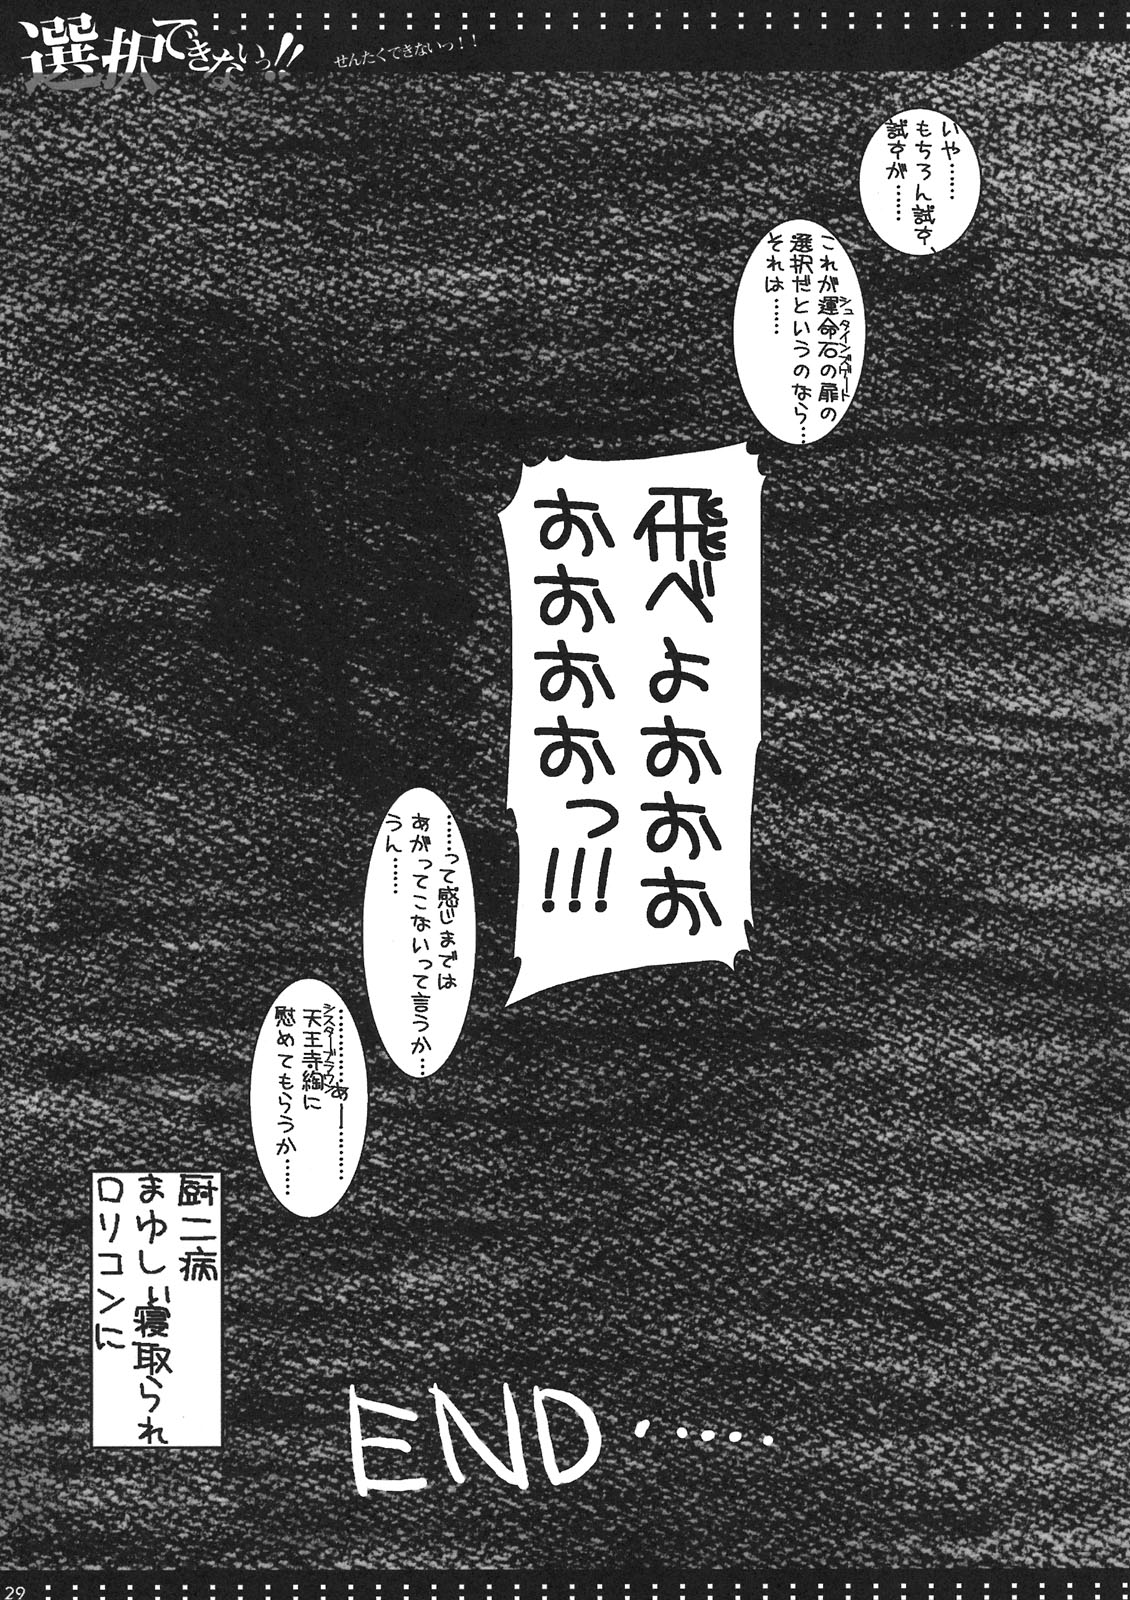 選択できないっ!!
せんたくできないっ！！
いや……
もちろん試す、
試すが……
これが運命石の扉の
シュタインズゲート
選択だというのなら…
それは……
飛べよおおお
おおおおっ!!!
……って感じまでは
あがってこないって言うか…
うん……
…………あー…………
天王寺綯に
シスターブラウン
慰めてもらうか……
厨二病
まゆしぃ寝取られ
ロリコンに
END……
29